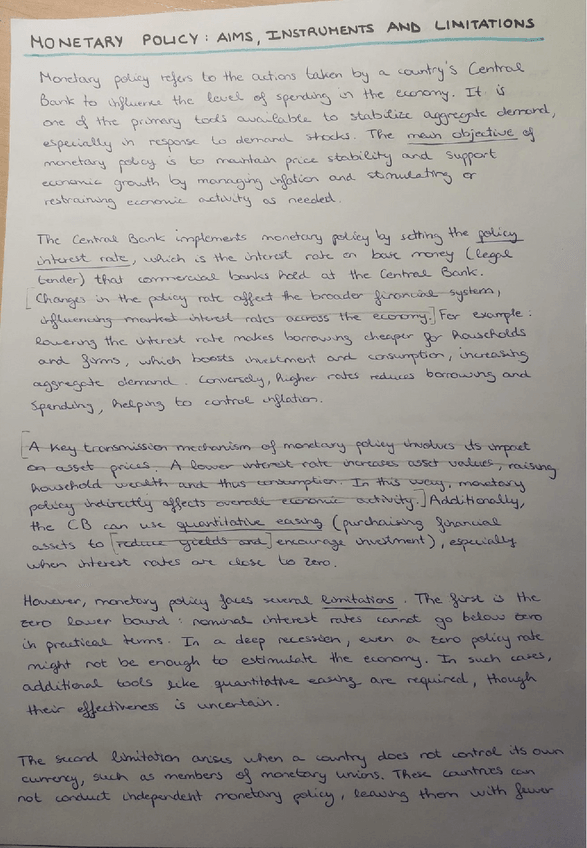 MONETARY POLICY: AIMS, INSTRUMENTS AND LIMITATIONS
Monetary policy refers to the actions taken by a country's Central
Bank to influence the level of spending in the economy. It is
one of the primary tools available to stabilize aggregate demand,
especially in response to demand shocks. The main objective of
monetary policy is to maintain price stability and support
economic growth by managing inflation and stimulating or
restraining economic activity as needed.
The Central Bank implements monetary policy by setting the policy
interest rate, which is the interest rate on base money (legal
tender) that commercial banks hold at the Central Bank.
[Changes in the policy rate affect the broader financial system,
influencing market interest rates across the economy.] For example:
lowering the interest rate makes borrowing cheaper for households
and firms, which boosts investment and consumption, increasing
aggregate demand. Conversely, higher rates reduces borrowing and
spending, helping to control inflation.
[A key transmission mechanism of monetary policy involves its impact
on asset prices. A lower interest rate increases asset values, raising
household wealth and thus consumption. In this way, monetary
policy indirectly affects overall economic activity.] Additionally,
the CB can use quantitative easing (purchaising financial
assets to [reduce yields and] encourage investment), especially
when interest rates are close to zero.
However, monetary policy faces several limitations. The first is the
zero lower bound: nominal interest rates cannot go below zero
in practical terms. In a deep recession, even a zero policy rate
might not be enough to estimulate the economy. In such cases,
additional tools like quantitative easing are required, though
their effectiveness is uncertain.
The second limitation arises when a country does not control its own
currency, such as members of monetary unions. These countries can
not conduct independent monetary policy, leaving them with fewer